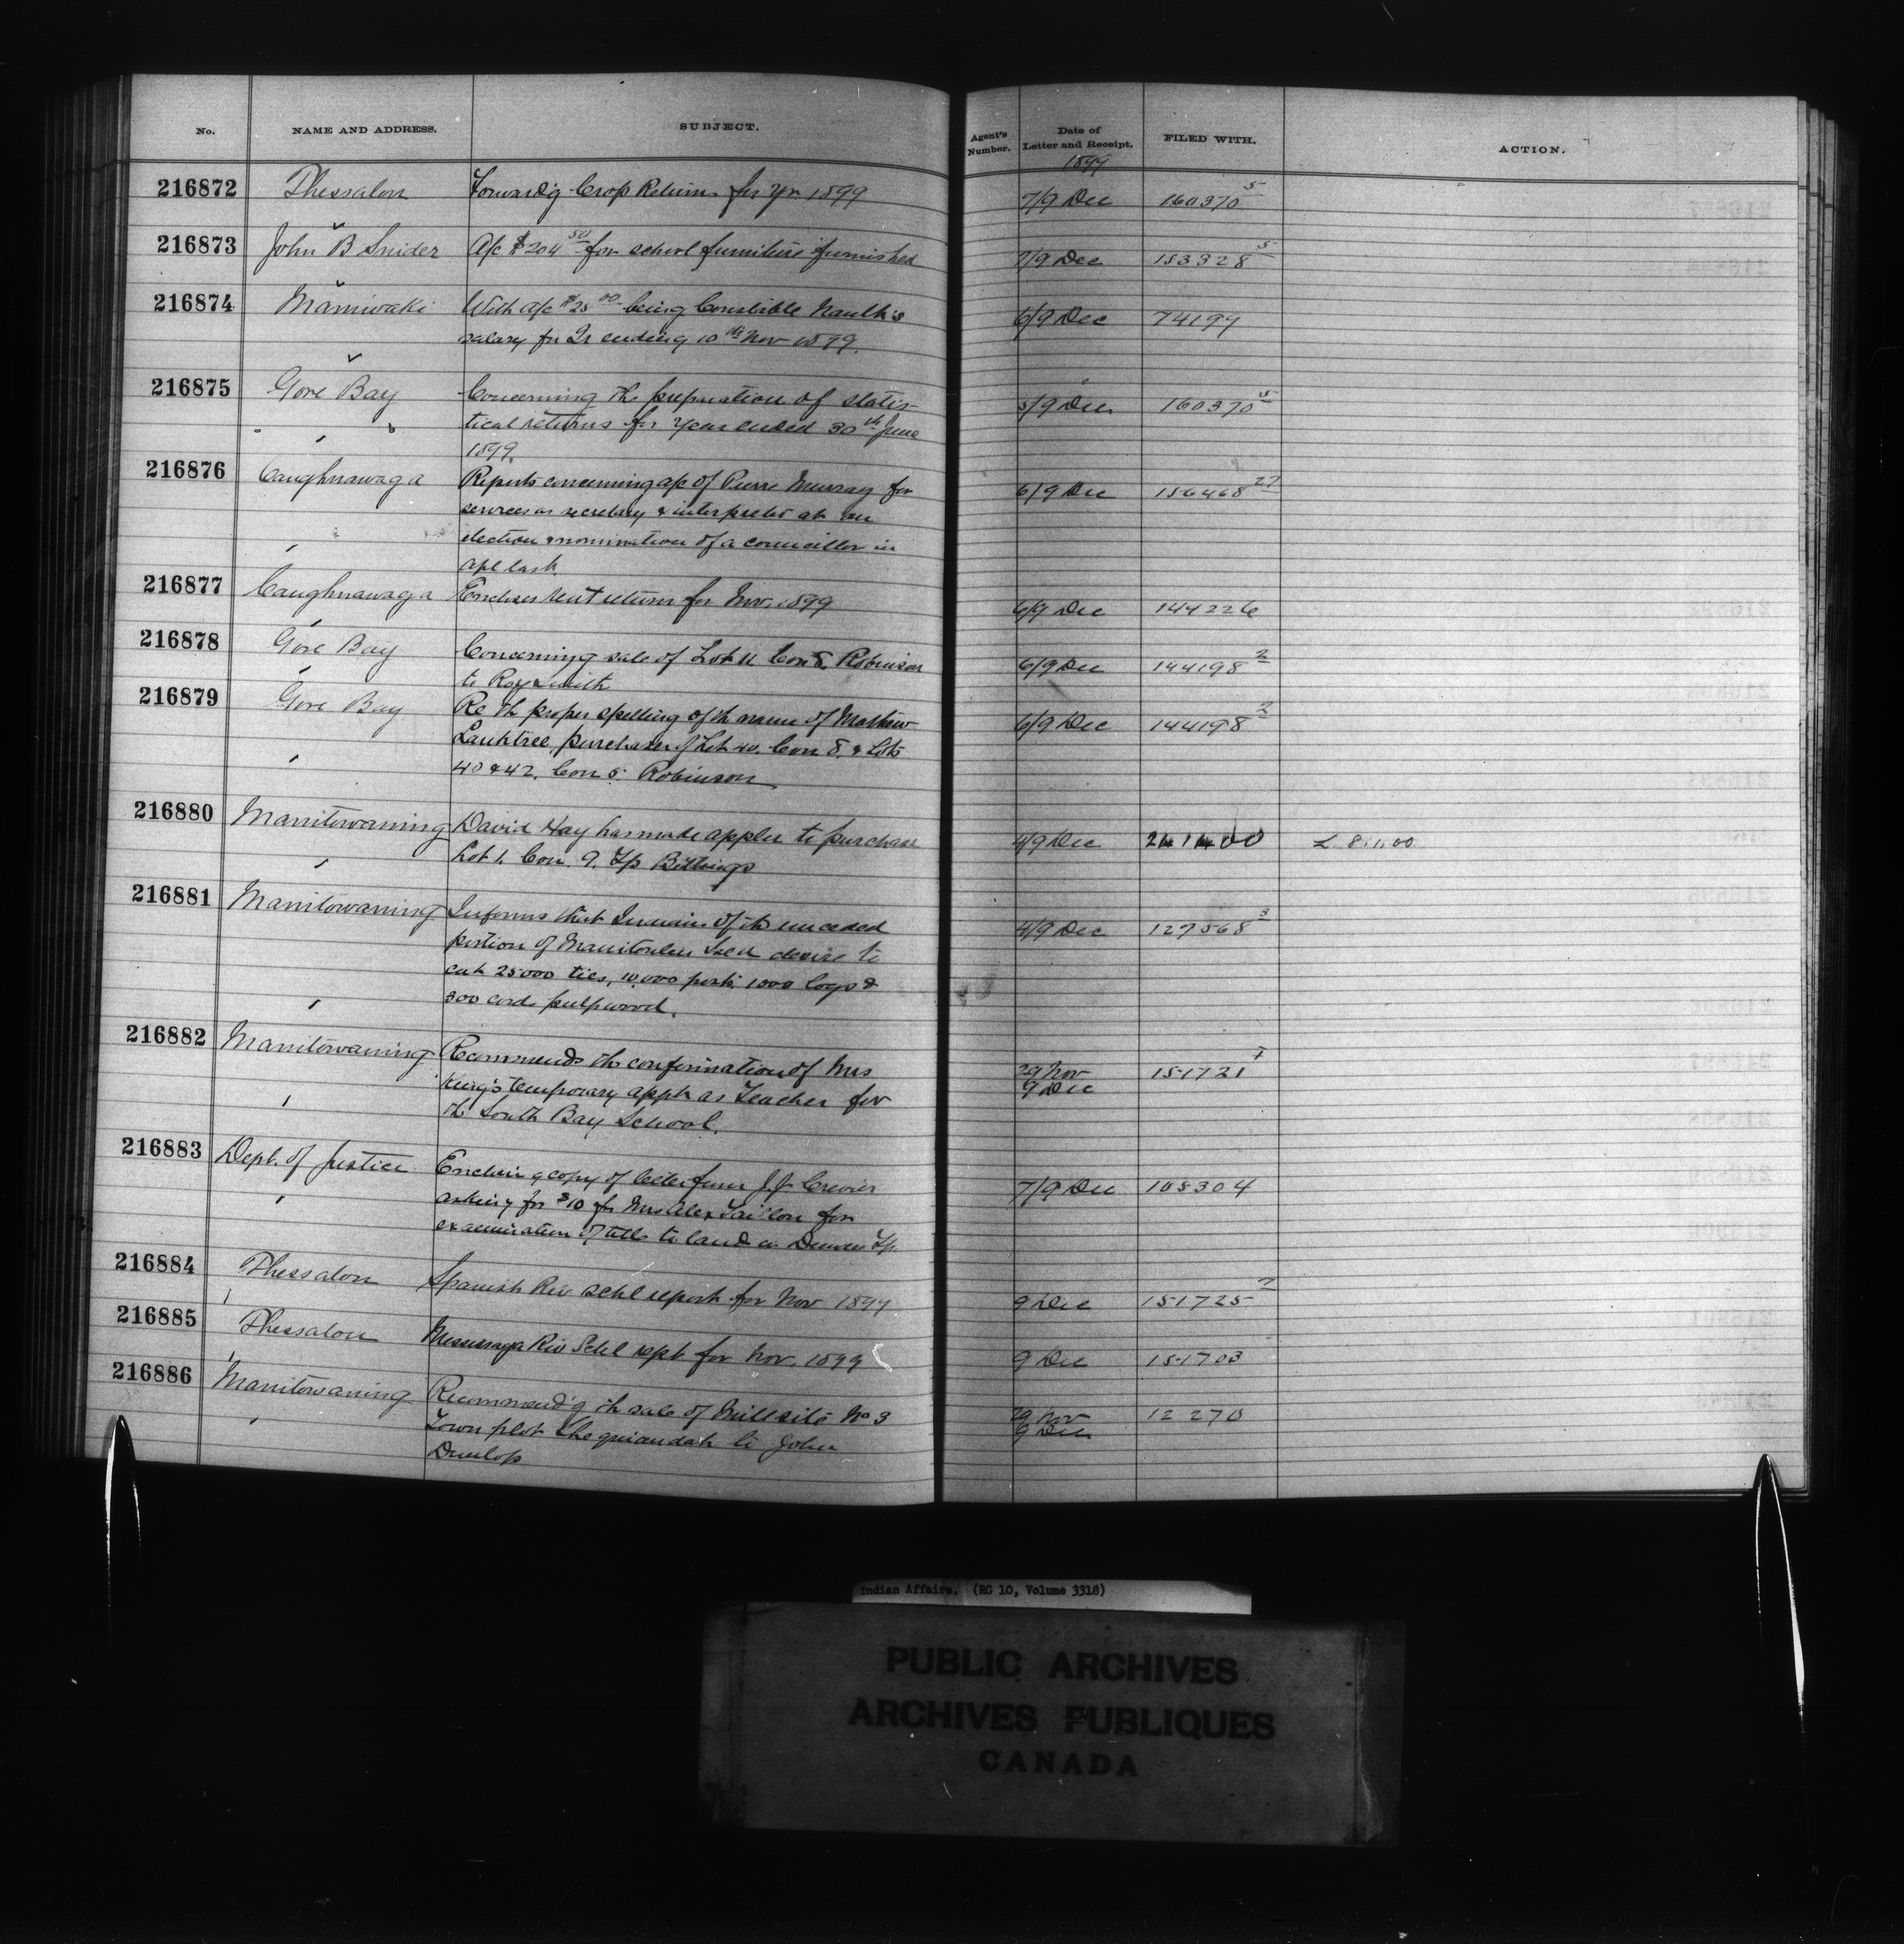 No. NAME AND ADDRESS. SUBJECT. Agent's Number. Date of Letter and Receipt. FILED WITH. ACTION.
1899
216872 Thessalon Forward'g Crop Returns for yr 1899 7/9 Dec 160370 5
216873 John B Snider A/c $204 50 for school furniture furnished 7/9 Dec 153328 5
216874 Maniwaki With a/c $25 00 being Constable Nault's 6/9 Dec 74199
salary for Qr ending 10th Nov 1899.
216875 Gore Bay Concerning the preparation of statis- 5/9 Dec 160370 5
tical returns for year ended 30th June
1899.
216876 Caughnawaga Reports concerning a/c of Pierre Murray for 6/9 Dec 156468 27
services as secretary & interpreter at an
election & nomination of a councillor in
apl last.
216877 Caughnawaga Encloses rent return for Nov. 1899 6/9 Dec 144226
216878 Gore Bay Concerning sale of Lot 11 Con 8, Robinson 6/9 Dec 144198 2
to Roy Smith
216879 Gore Bay Re th proper spelling of th name of Mathew 6/9 Dec 144198 2
purchaser of Lot 40, Con 8, & Lots
40 & 42, Con 5 Robinson
216880 Manitowaning David Hay has made appln to purchase 4/9 Dec 241400 L. 8.1.00
Lot 1, Con. 9, Tp Billings
216881 Manitowaning Informs that Indians of th unceded 4/9 Dec 127568 3
portion of Manitoulin Isld desire to
cut 25000 ties, 10,000 posts 1000 logs &
300 cords pulpwood.
216882 Manitowaning Recommends the confirmation of Mrs 29 Nov 151721
King's temporary appt as Teacher for 9 Dec
th South Bay School.
216883 Dept. of Justice Enclosing copy of letter from J.J. Crevier 7/9 Dec 108304
asking for $10 for Mrs Alex Taillon for
examination of title to land in Tp.
216884 Thessalon Spanish Riv Schl report for Nov 1899 9 Dec 151725 7
216885 Thessalon Mississaga Riv Schl rept for Nov. 1899 9 Dec 151703
216886 Manitowaning Recommend'g th sale of Mill site No 3 29 Nov 12270
Town plot Sheguiandah to John 9 Dec
Dunlop
Indian Affairs. (RG 10, Volume 3318)
PUBLIC ARCHIVES
ARCHIVES PUBLIQUES
CANADA